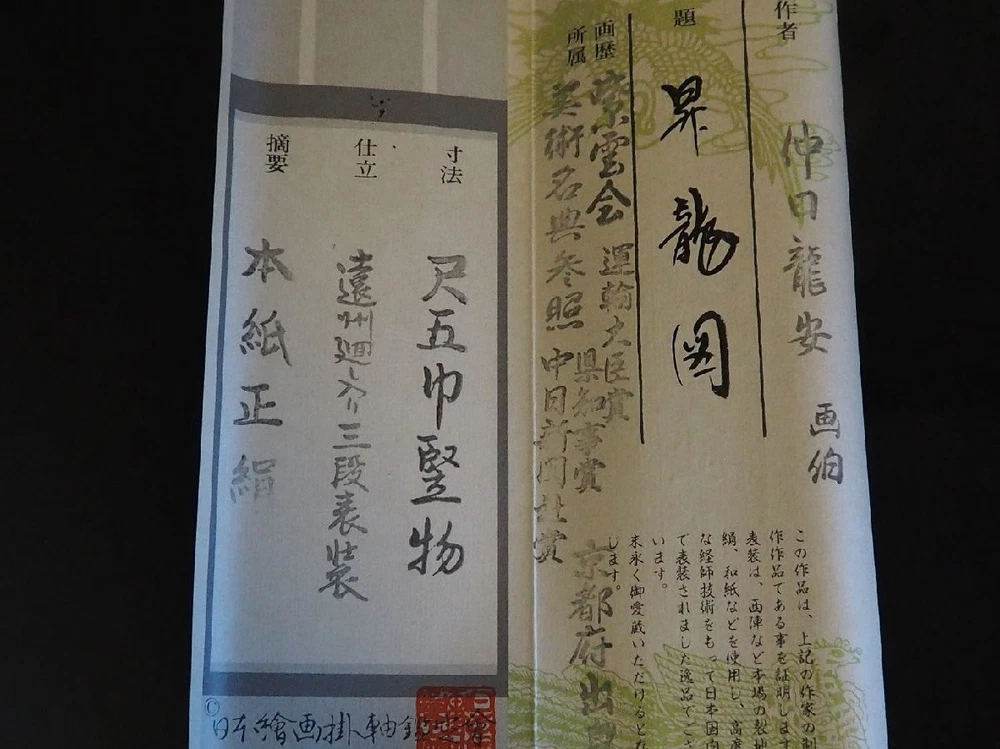 作者
仲田龍安 画伯
題
昇龍図
画歴
所属
紫雲会 運輸大臣賞
県知事賞
京都府出身
美術名典参照 中日新聞社賞
この作品は、上記の作家の制
作作品である事を証明します
表装は、西陣など本場の裂地
絹、和紙などを使用し、高度
な経師技術をもって日本国内
で表装されました逸品でござ
います。
末永く御愛蔵いただけるとな
します。
寸法
尺五巾竪物
仕立
遠州廻シ入り三段表装
摘要
本紙正絹
©日本繪画掛軸